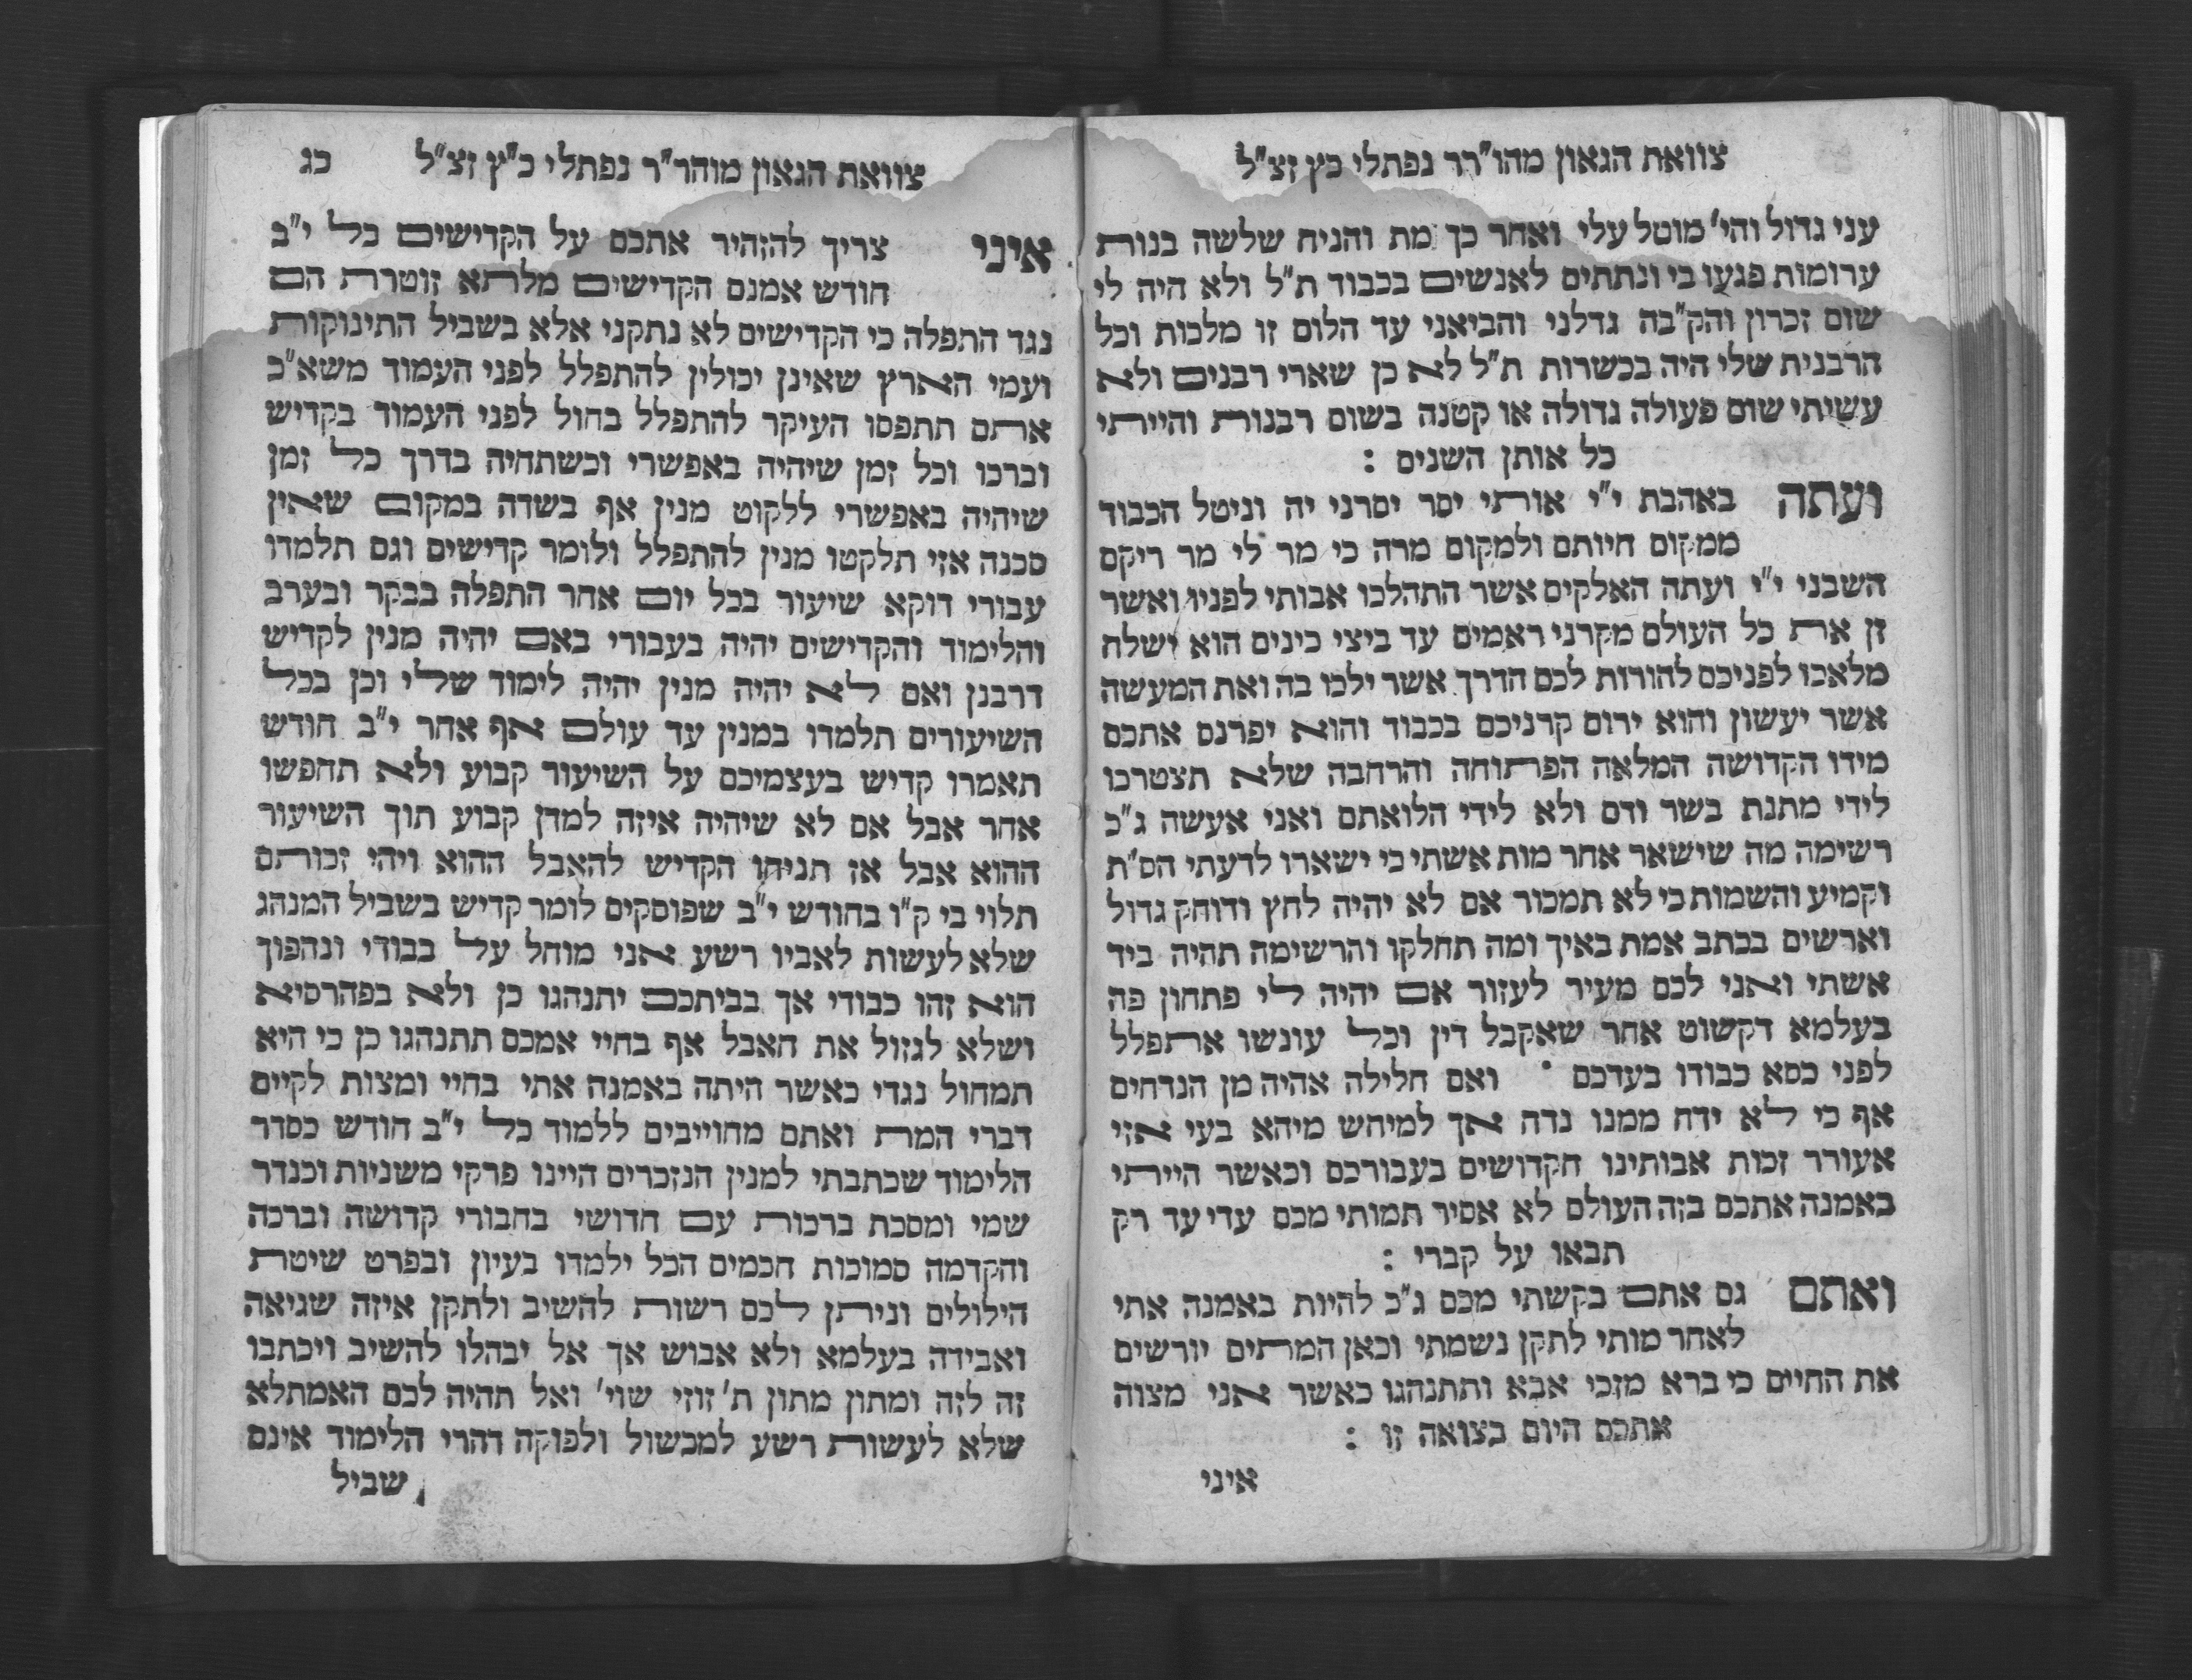 צוואת הגאון מהו"רר נפתלי כץ זצ"ל
עני גדול והי' מוטל עלי ואחר כך מת והניח שלשה בנות
ערומות פגעו בי ונתתים לאנשים בכבוד ת"ל ולא היה לי
שום זכרון והק"בה גדלני והביאני עד הלום זו מלכות וכל
הרבנית שלי היה בכשרות ת"ל לא כן שארי רבנים ולא
עשיתי שום פעולה גדולה או קטנה בשום רבנות והייתי
כל אותן השנים :
ועתה באהבת י"י אותי יסר יסרני יה וניטל הכבוד
ממקום חיותם ולמקום מרה כי מר לי מר ריקם
השבני י"י ועתה האלקים אשר התהלכו אבותי לפניו ואשר
זן את כל העולם מקרני ראמים עד ביצי כינים הוא ישלח
מלאכו לפניכם להורות לכם הדרך אשר ילכו בה ואת המעשה
אשר יעשון והוא ירום קרניכם בכבוד והוא יפרנס אתכם
מידו הקדושה המלאה הפתוחה והרחבה שלא תצטרכו
לידי מתנת בשר ודם ולא לידי הלואתם ואני אעשה ג"כ
רשימה מה שישאר אחר מות אשתי כי ישארו לדעתי הס"ת
וקמיע והשמות כי לא תמכור אם לא יהיה לחץ ודוחק גדול
וארשים בכתב אמת באיך ומה תחלקו והרשימה תהיה ביד
אשתי ואני לכם מעיר לעזור אם יהיה לי פתחון פה
בעלמא דקשוט אחר שאקבל דין וכל עונשו אתפלל
לפני כסא כבודו בעדכם · ואם חלילה אהיה מן הנדחים
אף כי לא ידח ממנו נדח אך למיחש מיהא בעי אזי
אעורר זכות אבותינו הקדושים בעבורכם וכאשר הייתי
באמנה אתכם בזה העולם לא אסיר תמותי מכם עדי עד רק
תבאו על קברי :
ואתם גם אתם בקשתי מכם ג"כ להיות באמנה אתי
לאחר מותי לתקן נשמתי וכאן המתים יורשים
את החיים כי ברא מזכי אבא ותתנהגו כאשר אני מצוה
אתכם היום בצואה זו :
איני
צוואת הגאון מוהר"ר נפתלי כ"ץ זצ"ל כג
איני צריך להזהיר אתכם על הקדישים כל י"ב
חודש אמנם הקדישים מלתא זוטרת הם
נגד התפלה כי הקדישים לא נתקני אלא בשביל התינוקות
ועמי הארץ שאינן יכולין להתפלל לפני העמוד משא"כ
אתם תתפסו העיקר להתפלל בחול לפני העמוד בקדיש
וברכו וכל זמן שיהיה באפשרי וכשתחיה בדרך כל זמן
שיהיה באפשרי ללקוט מנין אף בשדה במקום שאין
סכנה אזי תלקטו מנין להתפלל ולומר קדישים וגם תלמדו
עבורי דוקא שיעור בכל יום אחר התפלה בבקר ובערב
והלימוד והקדישים יהיה בעבורי באם יהיה מנין לקדיש
דרבנן ואם לא יהיה מנין יהיה לימוד שלי וכן בכל
השיעורים תלמדו במנין עד עולם אף אחר י"ב חודש
תאמרו קדיש בעצמיכם על השיעור קבוע ולא תחפשו
אחר אבל אם לא שיהיה איזה למדן קבוע תוך השיעור
ההוא אבל אז תניחו הקדיש להאבל ההוא ויהי זכותם
תלוי בי ק"ו בחודש י"ב שפוסקים לומר קדיש בשביל המנהג
שלא לעשות לאביו רשע אני מוחל על כבודי ונהפוך
הוא זהו כבודי אך בביתכם יתנהגו כן ולא בפהרסיא
ושלא לגזול את האבל אף בחיי אמכם תתנהגו כן כי היא
תמחול נגדי כאשר היתה באמנה אתי בחיי ומצות לקיים
דברי המת ואתם מחוייבים ללמוד כל י"ב חודש כסדר
הלימוד שכתבתי למנין הנזכרים היינו פרקי משניות וכנדר
שמי ומסכת ברכות עם חדושי בחבורי קדושה וברכה
והקדמה סמוכות חכמים הכל ילמדו בעיון ובפרט שיטת
הילולים וניתן לכם רשות להשיב ולתקן איזה שגיאה
ואבידה בעלמא ולא אבוש אך אל יבהלו להשיב ויכתבו
זה לזה ומתון מתון ת' זוזי שוי' ואל תהיה לכם האמתלא
שלא לעשות רשע למכשול ולפוקה דהרי הלימוד אינם
שביל